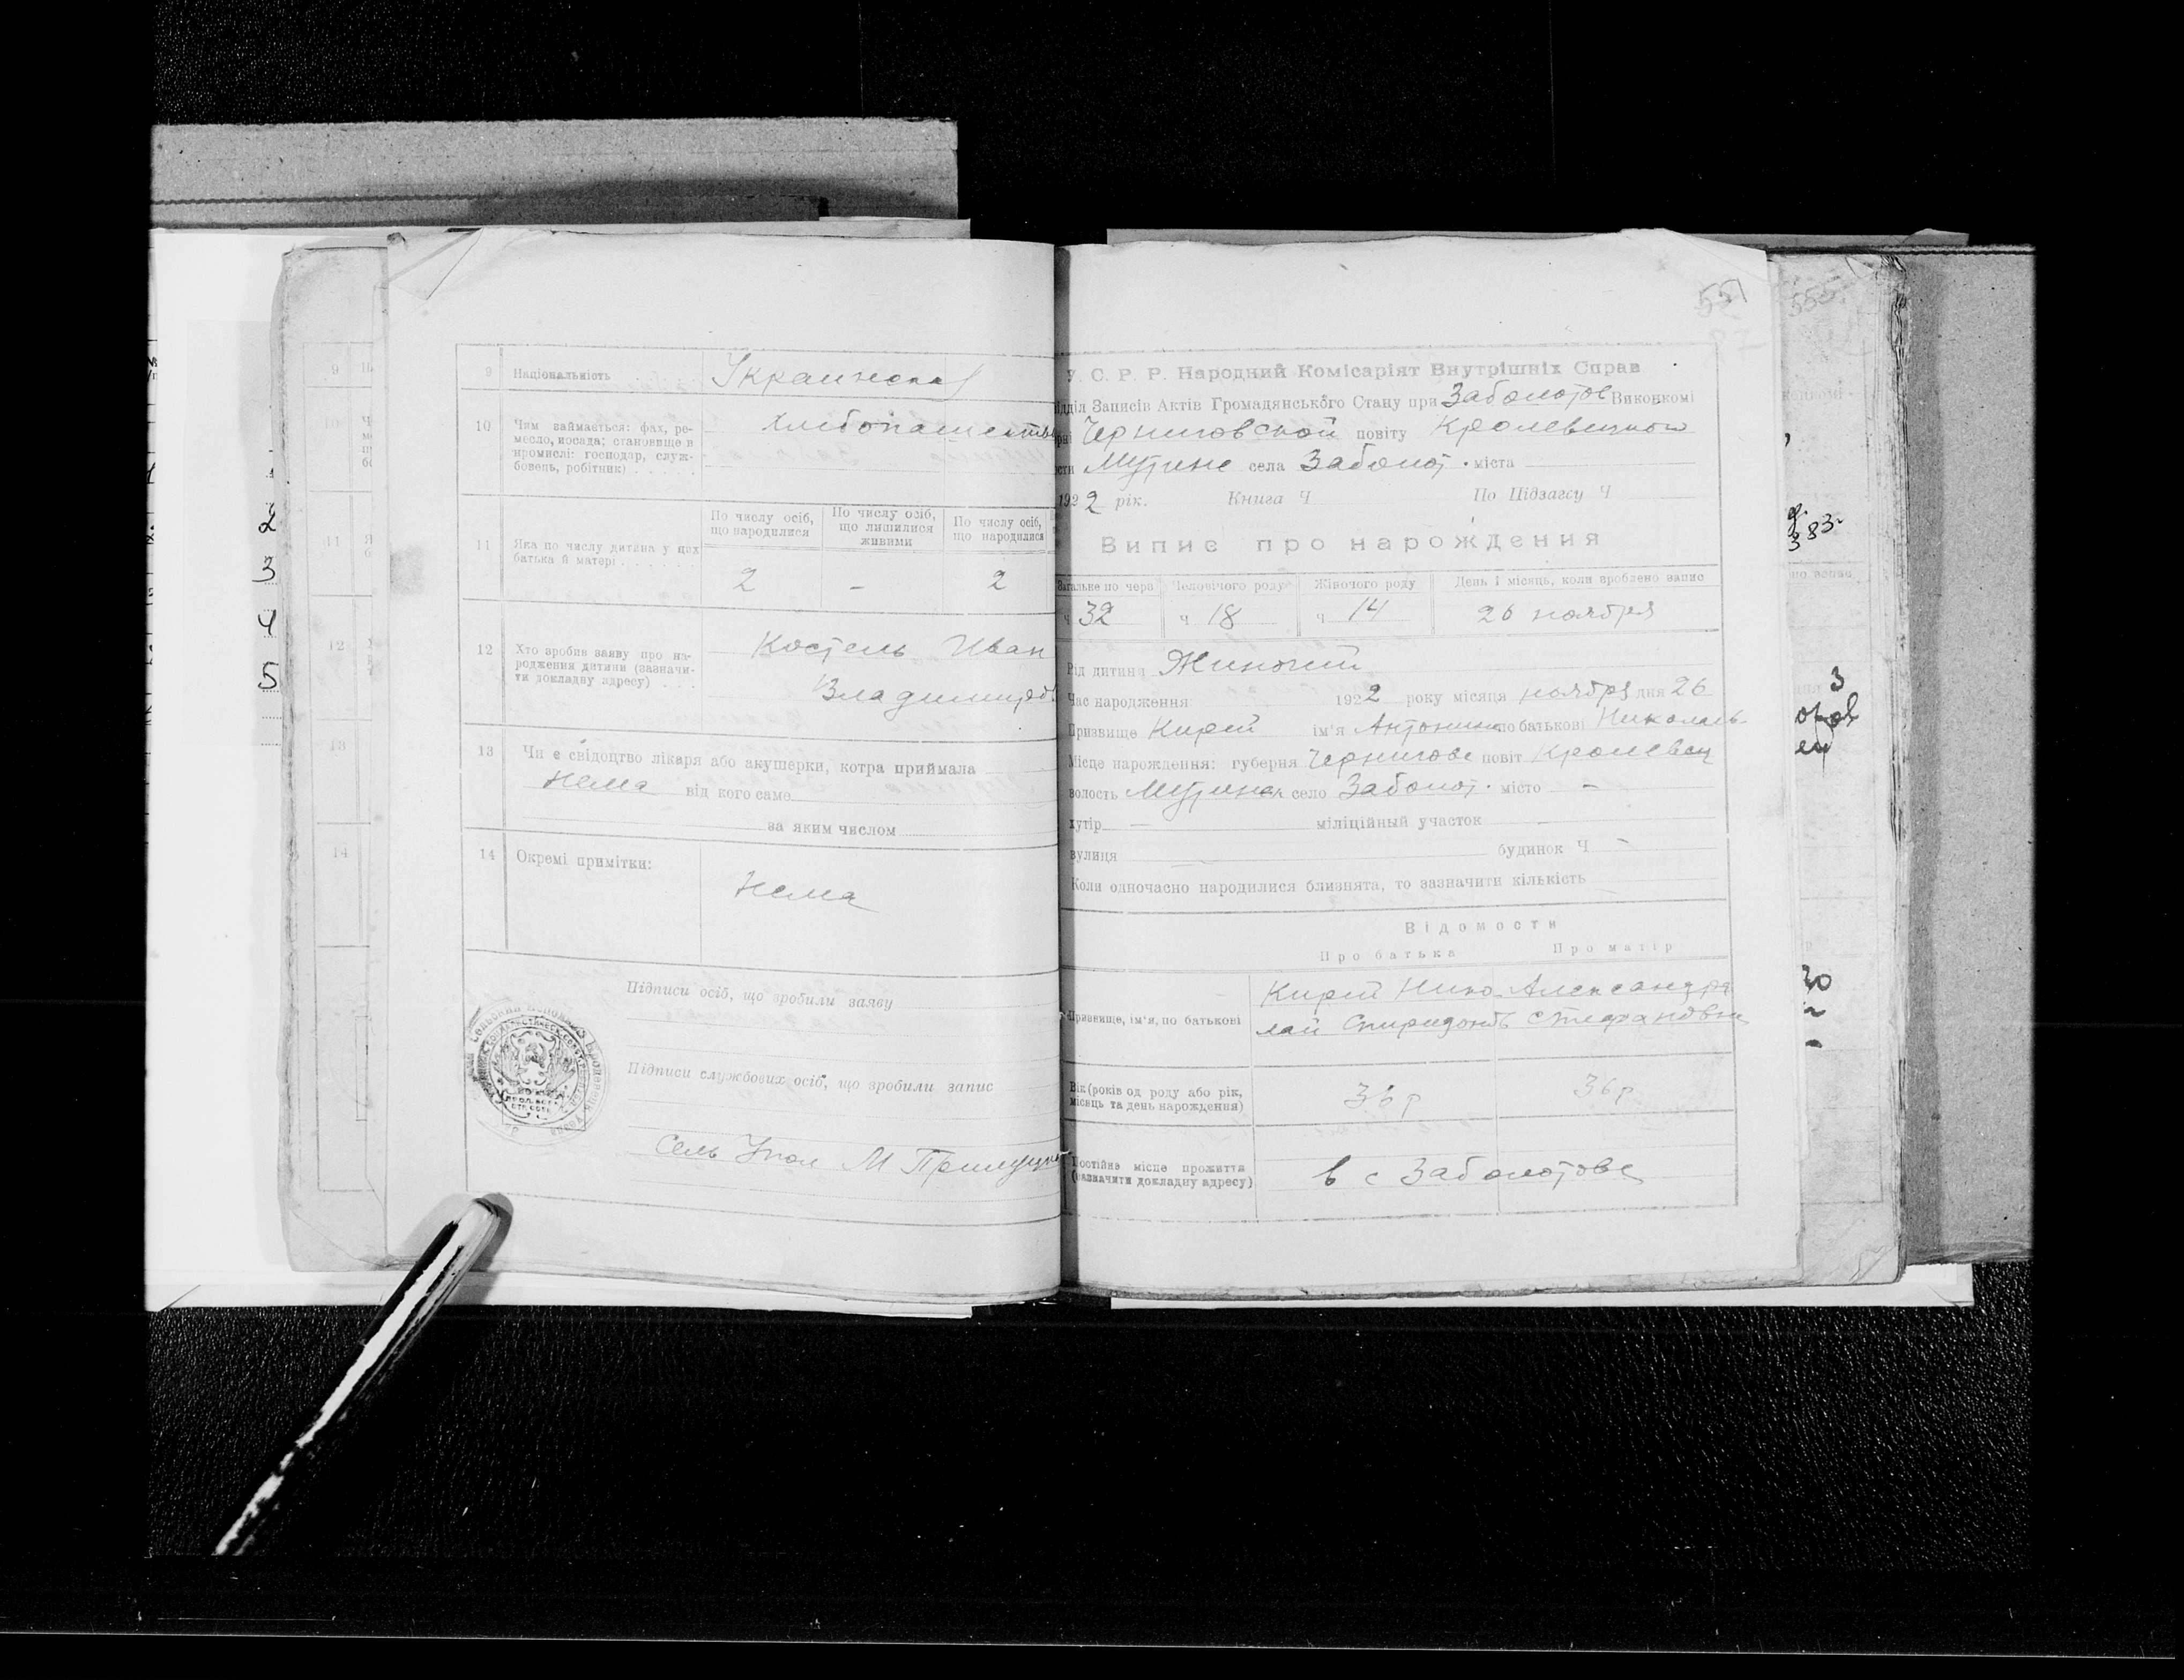 9 Національність Украинская
10 Чим займається: фах, ре-
месло, посада; становище в
промислі: господар, служ-
бовець, робітник) Хлибопашество
По числу осіб, що народилися
По числу осіб, що лишилися живими
По числу осіб, що народилися
11 Яка по числу дитина у цих
батька й матері 2 - 2
12 Хто зробив заяву про на-
родження дитини (зазначи-
ти докладну адресу) Костель Иван
Владимиров
13 Чи є свідоцтво лікаря або акушерки, котра приймала
Нема від кого саме
за яким числом
14 Окремі примітки: Нема
Підписи осіб, що зробили заяву
Підписи службових осіб, що зробили запис
Сель Упол М
551
У. С. Р. Р. Народний Комісаріят Внутрішніх Справ
Записів Актів Громадянського Стану при Заболотов Виконкомі
Черниговской повіту Кролевецкого
Мутине села Заболот. міста
1922 рік. Книга Ч По Підзагсу Ч
Випис про нарождения
Загальне по черз Человічого роду Жіночого роду День і місяць, коли зроблено запис
ч 32 ч 18 ч 14 26 ноября
Рід дитини Жиночий
Час народження 1922 року місяця ноября дня 26
Призвище Кирей ім'я Антонина по батькові Николаев-
Місце нарождення: губерня Чернигове повіт Кролевец
волость Мутинск село Заболот. місто -
хутір — міліційный участок —
вулиця — будинок Ч -
Коли одночасно народилися близнята, то зазначити кількість
Відомости
Про батька Про матір
Призвище, ім'я, по батькові
Кирей Нико- Александра
лай Спиридонов Стефановна
Вік (років од роду або рік,
місяць та день нарождення) 36 р 36 р
Постійне місце прожиття
(зазначити докладну адресу) в с Заболотове